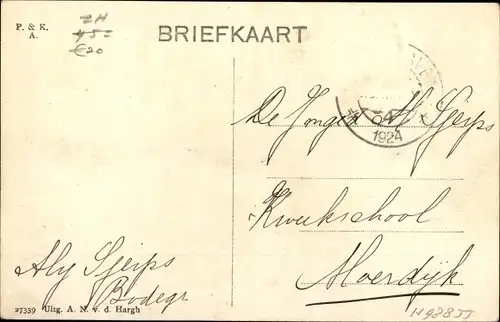 P. & K.
A.
ZH
45=
€20
BRIEFKAART
1924
De Jongen H. Sjerps
Kweekschool
Moerdijk
Aly Sjerps
Bodegr
27339 Uitg. A. N. v. d. Hargh